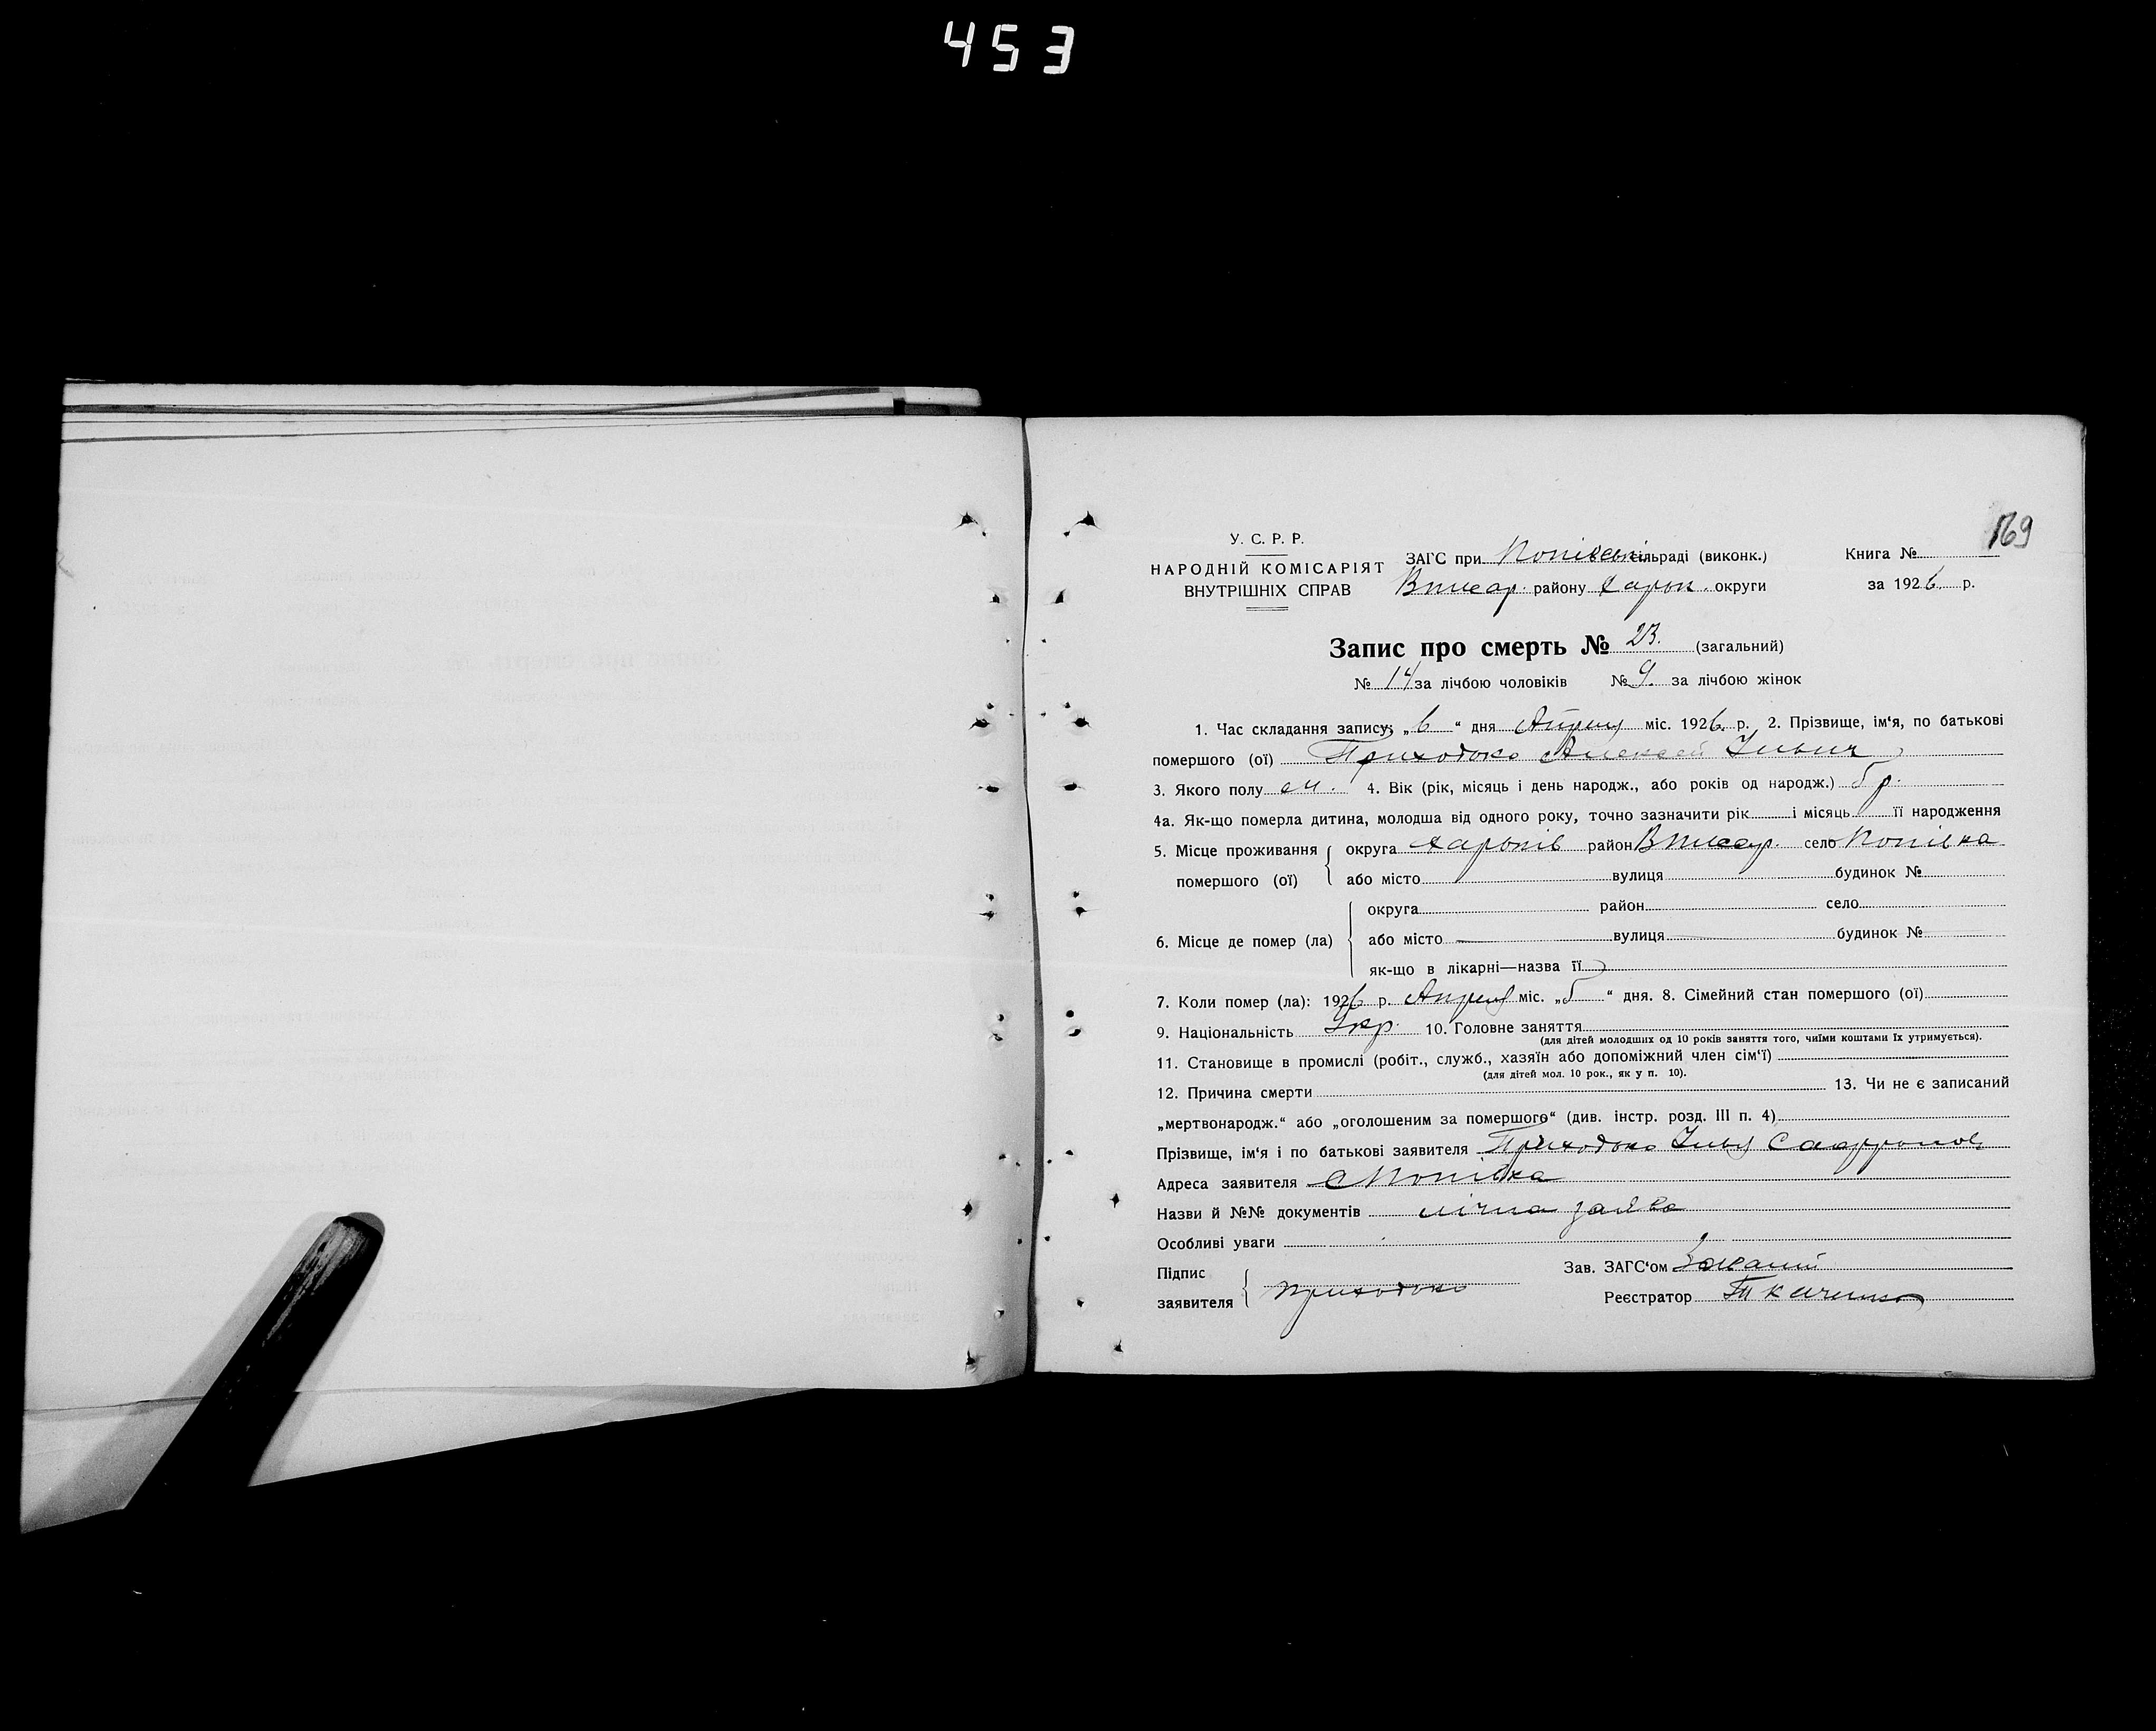 453
169
У. С. Р. Р.
НАРОДНІЙ КОМІСАРІЯТ
ВНУТРІШНІХ СПРАВ
ЗАГС при Копівській сільраді (виконк.)
району Харьк. округи
Книга №
за 1926 р.
Запис про смерть № 23. (загальний)
№ 14 за лічбою чоловіків № 9. за лічбою жінок
1. Час складання запису: „6“ дня Апреля міс. 1926 р. 2. Прізвище, ім‘я, по батькові
помершого (ої) Приходько Алексей Ільич
3. Якого полу м. 4. Вік (рік, місяць і день народж., або років од народж.) 5 р.
4а. Як-що померла дитина, молодша від одного року, точно зазначити рік і місяць її народження
5. Місце проживання помершого (ої) округа Харьків район село Копівка
або місто вулиця будинок №
6. Місце де помер (ла) округа район село
або місто вулиця будинок №
як-що в лікарні—назва її
7. Коли помер (ла): 1926 р. Апреля міс. „5“ дня. 8. Сімейний стан помершого (ої)
9. Національність Укр. 10. Головне заняття
(для дітей молодших од 10 років заняття того, чиїми коштами їх утримується).
11. Становище в промислі (робіт., служб., хазяїн або допоміжний член сім‘ї)
(для дітей мол. 10 рок., як у п. 10).
12. Причина смерти 13. Чи не є записаний
„мертвонародж.“ або „оголошеним за помершого“ (див. інстр. розд. III п. 4)
Прізвище, ім‘я і по батькові заявителя Приходько Ілья
Адреса заявителя с Копівка
Назви й №№ документів лічна заява
Особливі уваги
Підпис заявителя Приходько
Зав. ЗАГС‘ом
Реєстратор Ткаченко